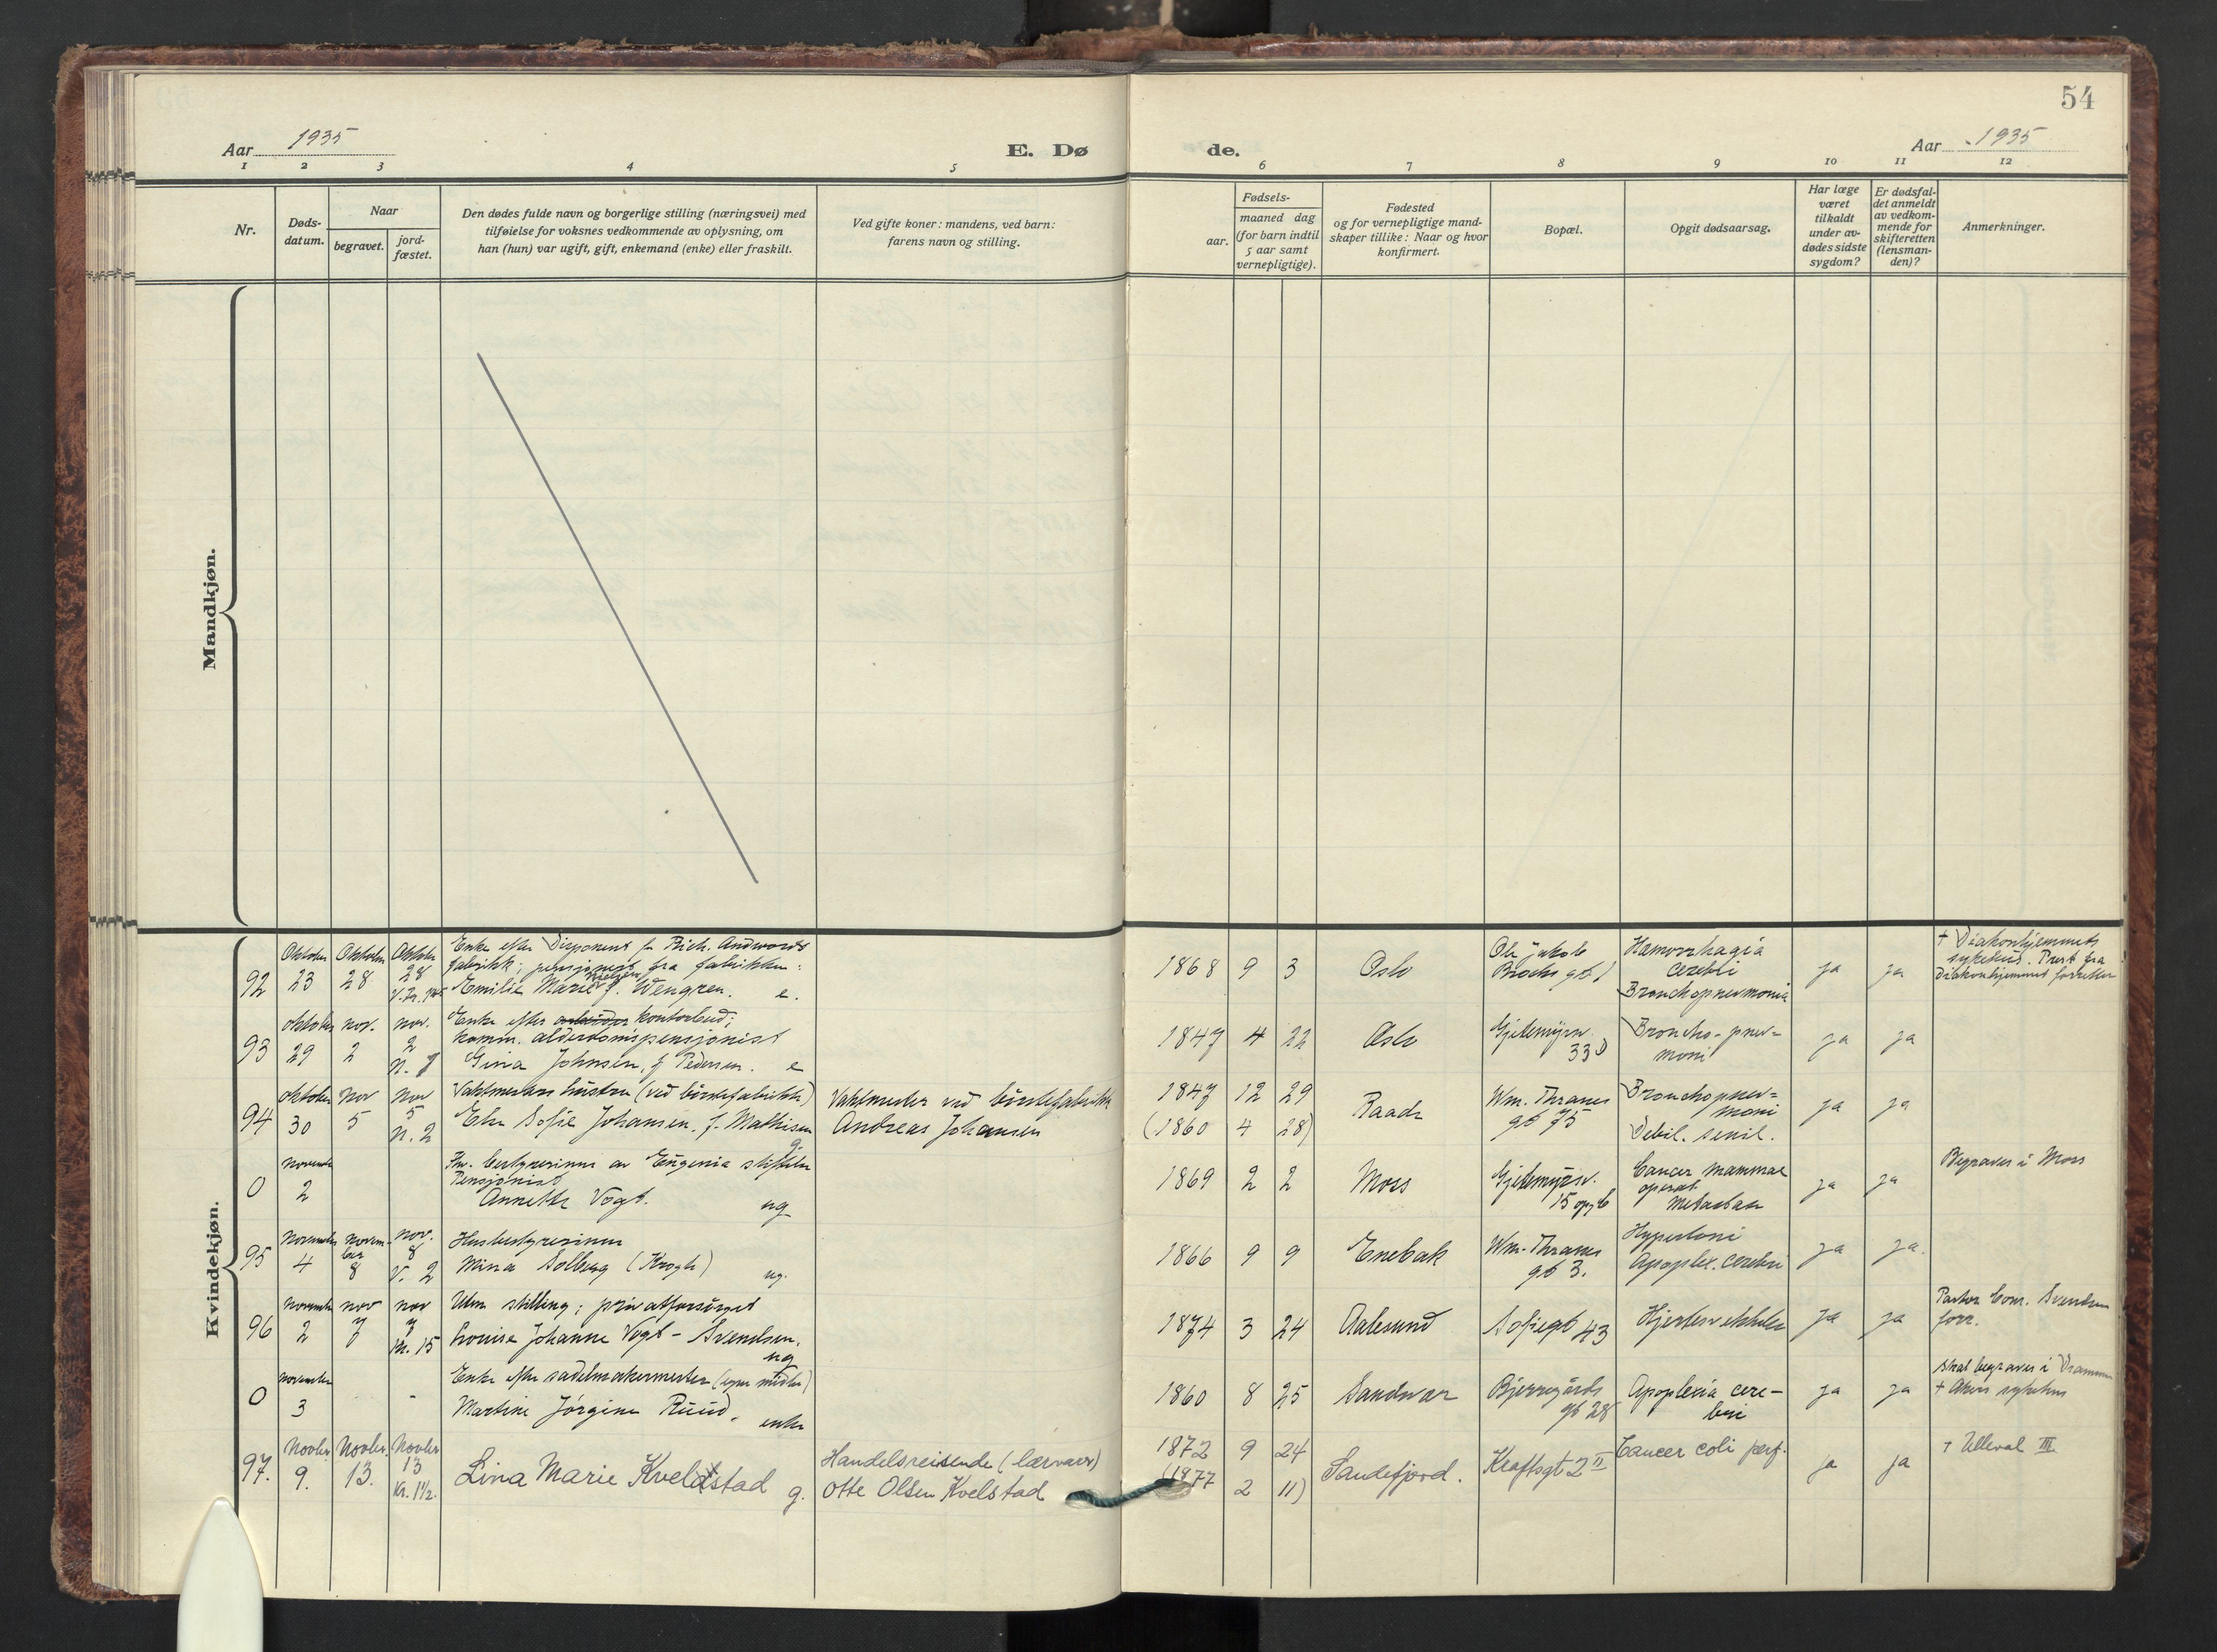 54
Aar 1935
E. Dø
de.
Aar 1935
1 2 3 4 5 6 7 8 9 10 11 12
Nr.
Døds-
datum.
Naar
begravet.
jord-
fæstet.
Den dødes fulde navn og borgerlige stilling (næringsvei) med
tilføielse for voksnes vedkommende av oplysning, om
han (hun) var ugift, gift, enkemand (enke) eller fraskilt.
Ved gifte koner: mandens, ved barn:
farens navn og stilling.
Fødsels-
aar.
maaned dag
(for barn indtil
5 aar samt
vernepligtige).
Fødested
og for vernepligtige mand-
skaper tillike: Naar og hvor
konfirmert.
Bopæl.
Opgit dødsaarsag.
Har læge
været
tilkaldt
under av-
dødes sidste
sygdom?
Er dødsfal-
det anmeldt
av vedkom-
mende for
skifteretten
(lensman-
den)?
Anmerkninger.
Mandkjøn.
Kvindekjøn.
92
Oktober
23
Oktober
28
Oktober
28
Enke efter Disponent for Rich. Andvords
fabrikk; pensjonist fra fabrikken:
Emilie Marie Nielsen f. Wengren. e.
1868 9 3
Oslo
Ole Jakob
Brochs gt. 1
Hæmorrhagia
cerebri
Bronchopnevmonia
ja
ja
† Diakonhjemmets
sykehus. Prest fra
Diakonhjemmet forretter
93
oktober
29
nov.
2
nov.
2
Enke efter arbeider kontorbud;
komm. alderdomspensjonist
Gina Johnsen, f. Pedersen. e
1847 4 22
Oslo
Gjetemyrsv.
33 D
Broncho-pnev=
moni
ja
ja
94
oktober
30
nov
5
nov
5
n. 2
Vaktmesters hustru (ved børstefabrikk)
Else Sofie Johansen. f. Mathisen
g.
Vaktmester ved børstefabrikk
Andreas Johansen
1847 12 29
(1860 4 28)
Raade
Wm. Thranes
gt 75
Bronchopnev=
moni
Debil. senil.
ja
ja
0
november
2
Fhv. bestyrerinne av Eugenia stiftelse
Pensjonist
Annette Vogt. ug
1869 2 2
Moss
Gjetemyrsv.
15 opg b
Cancer mammae
operat.
Metastase
ja
ja
Begraves i Moss
95
November
4
novem-
ber
8
nov.
8
V. 2
Husbestyrerinne
Mina Solberg (Krogh) ug.
1866 9 9
Enebak
Wm. Thranes
gt 3.
Hypertoni
Apoplex. cerebri
ja
ja.
96
november
2
nov
7
nov
7
Kr. 15
Uten stilling; privatforsørget
Louise Johanne Vogt-Svendsen.
ug
1874 3 24
Aalesund
Sofiegt 43
Hjertesvekkelse
ja
ja
Pastor Conr. Svendsen
forr.
0
november
3
-
Enke efter sadelmakermester (egne midler)
Martine Jørgine Ruud. enke
1860 8 25
Sandsvær
Bjerregårds
gt 28
Apoplexia cere-
bri
ja
ja
skal begraves i Drammen
† Akers sykehus
97.
Novbr.
9.
Novbr.
13.
Novbr.
13
Kr. 1½.
Lina Marie Kveldstad g.
Handelsreisende (lærvarer)
Otte Olsen Kvelstad
1872 9 24
(1877 2 11)
Sandefjord.
Kraftsgt 2 II
Cancer coli perf.
ja
ja
† Ulleval III